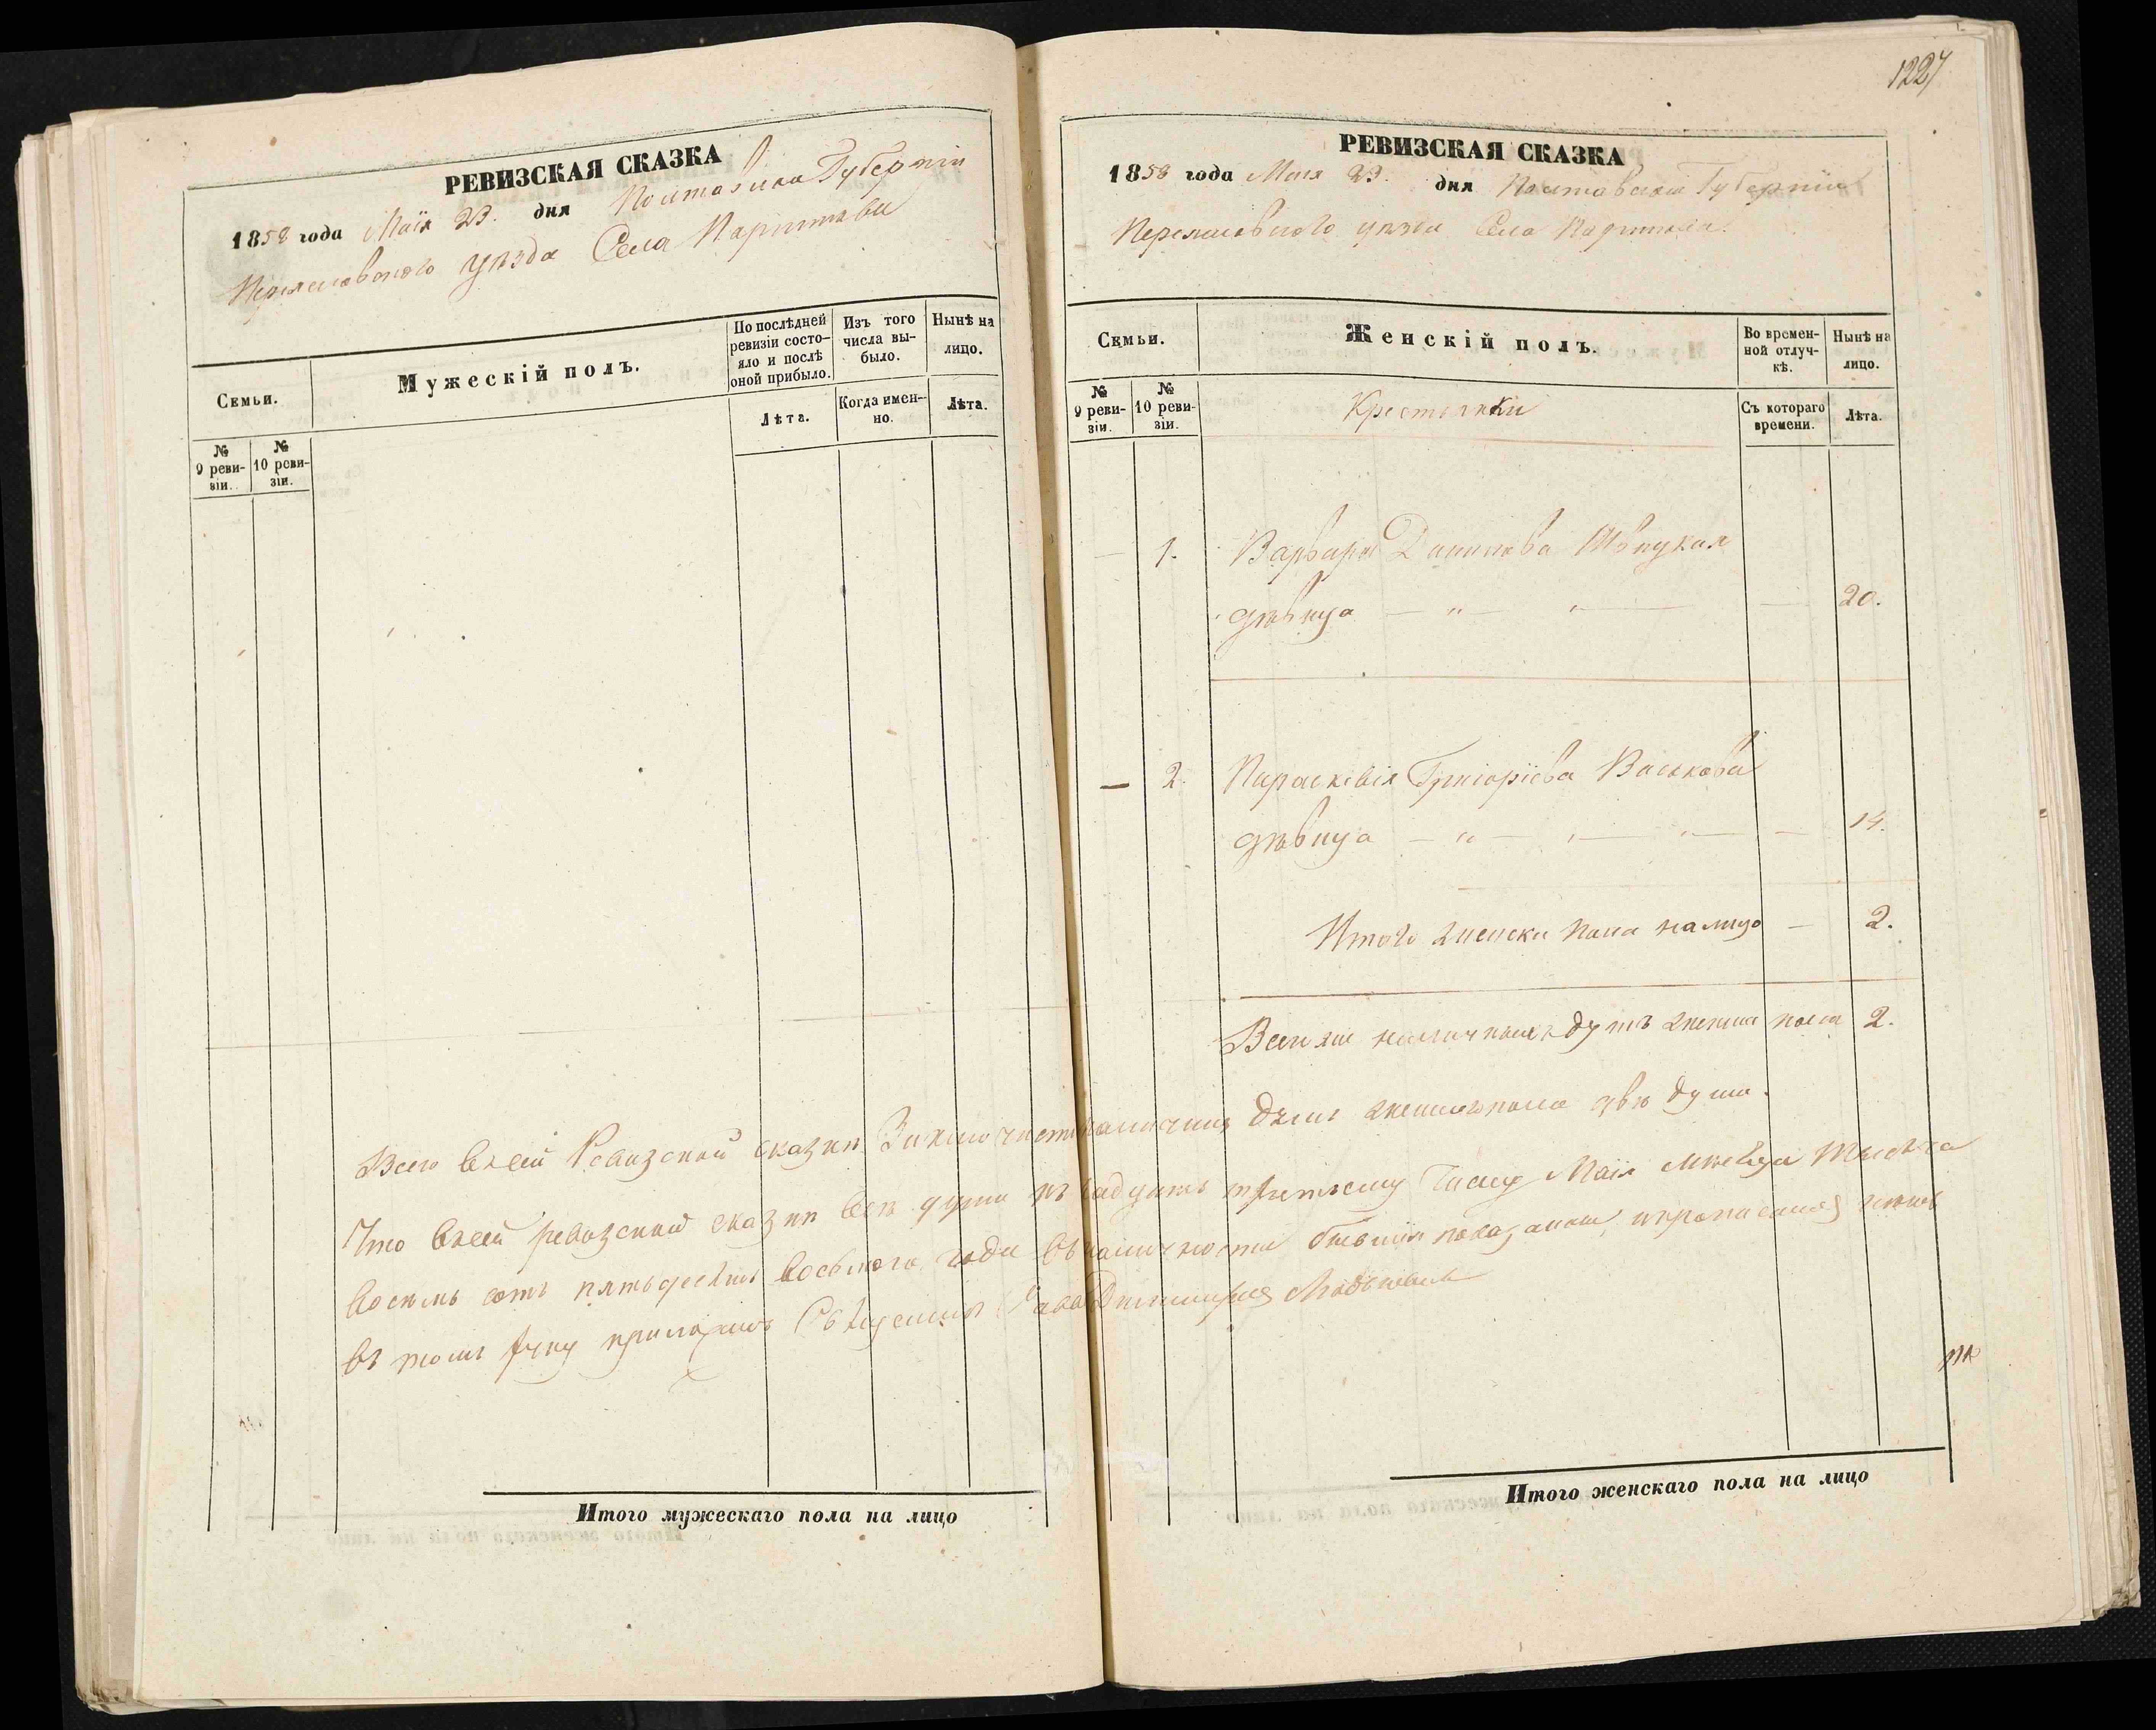 1227
РЕВИЗСКАЯ СКАЗКА
1858 года Маія 23. дня Полтавской Губерніи
Переяславского уѣзда Села
Семьи.
№ 9 ревизіи.
№ 10 ревизіи.
Мужескій полъ.
По послѣдней ревизіи состояло и послѣ оной прибыло.
Лѣта.
Изъ того числа выбыло.
Когда именно.
Нынѣ на лицо.
Лѣта.
Итого мужескаго пола на лицо
РЕВИЗСКАЯ СКАЗКА
1858 года Маія 23. дня Полтавской Губерніи
Переяславского уѣзда Села
Семьи.
№ 9 ревизіи.
№ 10 ревизіи.
Женскій полъ.
Во временной отлучкѣ.
Съ котораго времени.
Нынѣ на лицо.
Лѣта.
Крестьянки
— 1. Варвара Данилова
дѣвица — „ — — 20.
— 2. Параскевія Григоріева Васькова
дѣвица — „ — — 14.
Итого женска пола налицо — 2.
наличныхъ душъ женска пола 2.
Всего въ сей Ревизской сказки наличныхъ душъ женска пола двѣ души.
Что въ сей ревизской сказки всѣ души къ третьему числу Маія мѣсяца тысяча
восемь сотъ пятьдесятъ восьмого года въ наличности бывшія показаны,
въ томъ руку приложилъ Священникъ
Итого женскаго пола на лицо